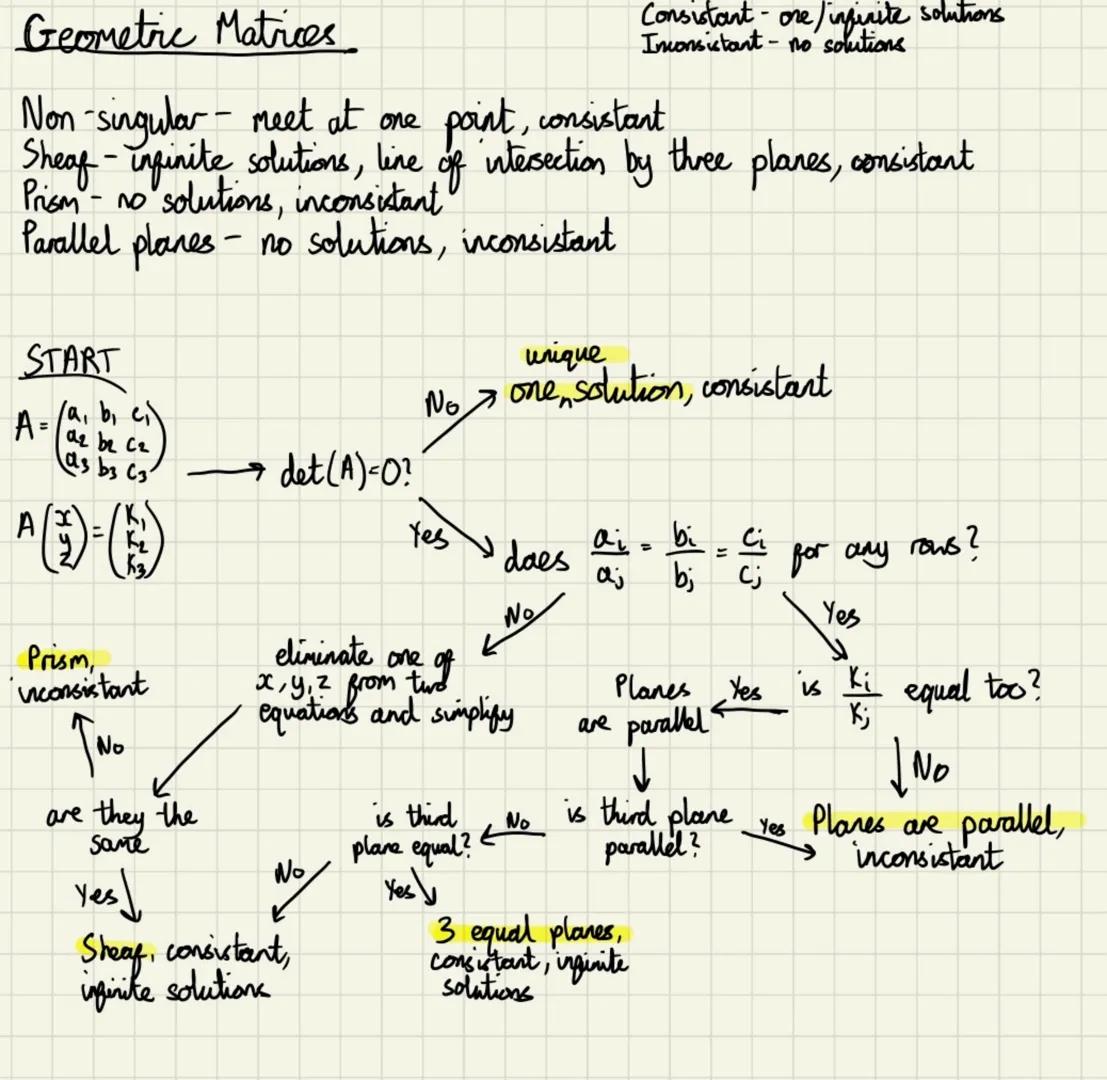 Geometric Matrices
Consistant - one/infinite solutions
Inconsistant - no solutions
Non-singular - meet at one point, consistant
Sheaf - infinite solutions, line of intersection by three planes, consistant
Prism - no solutions, inconsistant
Parallel planes - no solutions, inconsistant
START
A = (a₁ b₁ c₁
a₂ b₂ c₂
a₃ b₃ c₃)
A (x y z) = (K₁ K₂ K₃)
det(A)=0?
No
unique
one ^ solution, consistant
Yes
does aᵢ/aⱼ = bᵢ/bⱼ = cᵢ/cⱼ for any rows?
No
Yes
eliminate one of
x, y, z from two
equations and simplify
is Kᵢ/Kⱼ equal too?
Yes
Planes
are parallel
No
Planes are parallel,
inconsistant
is third plane
parallel?
Yes
No
is third
plane equal?
No
Yes
3 equal planes,
consistant, infinite
solutions
are they the
same
No
Prism,
inconsistant
Yes
Sheaf, consistant,
infinite solutions